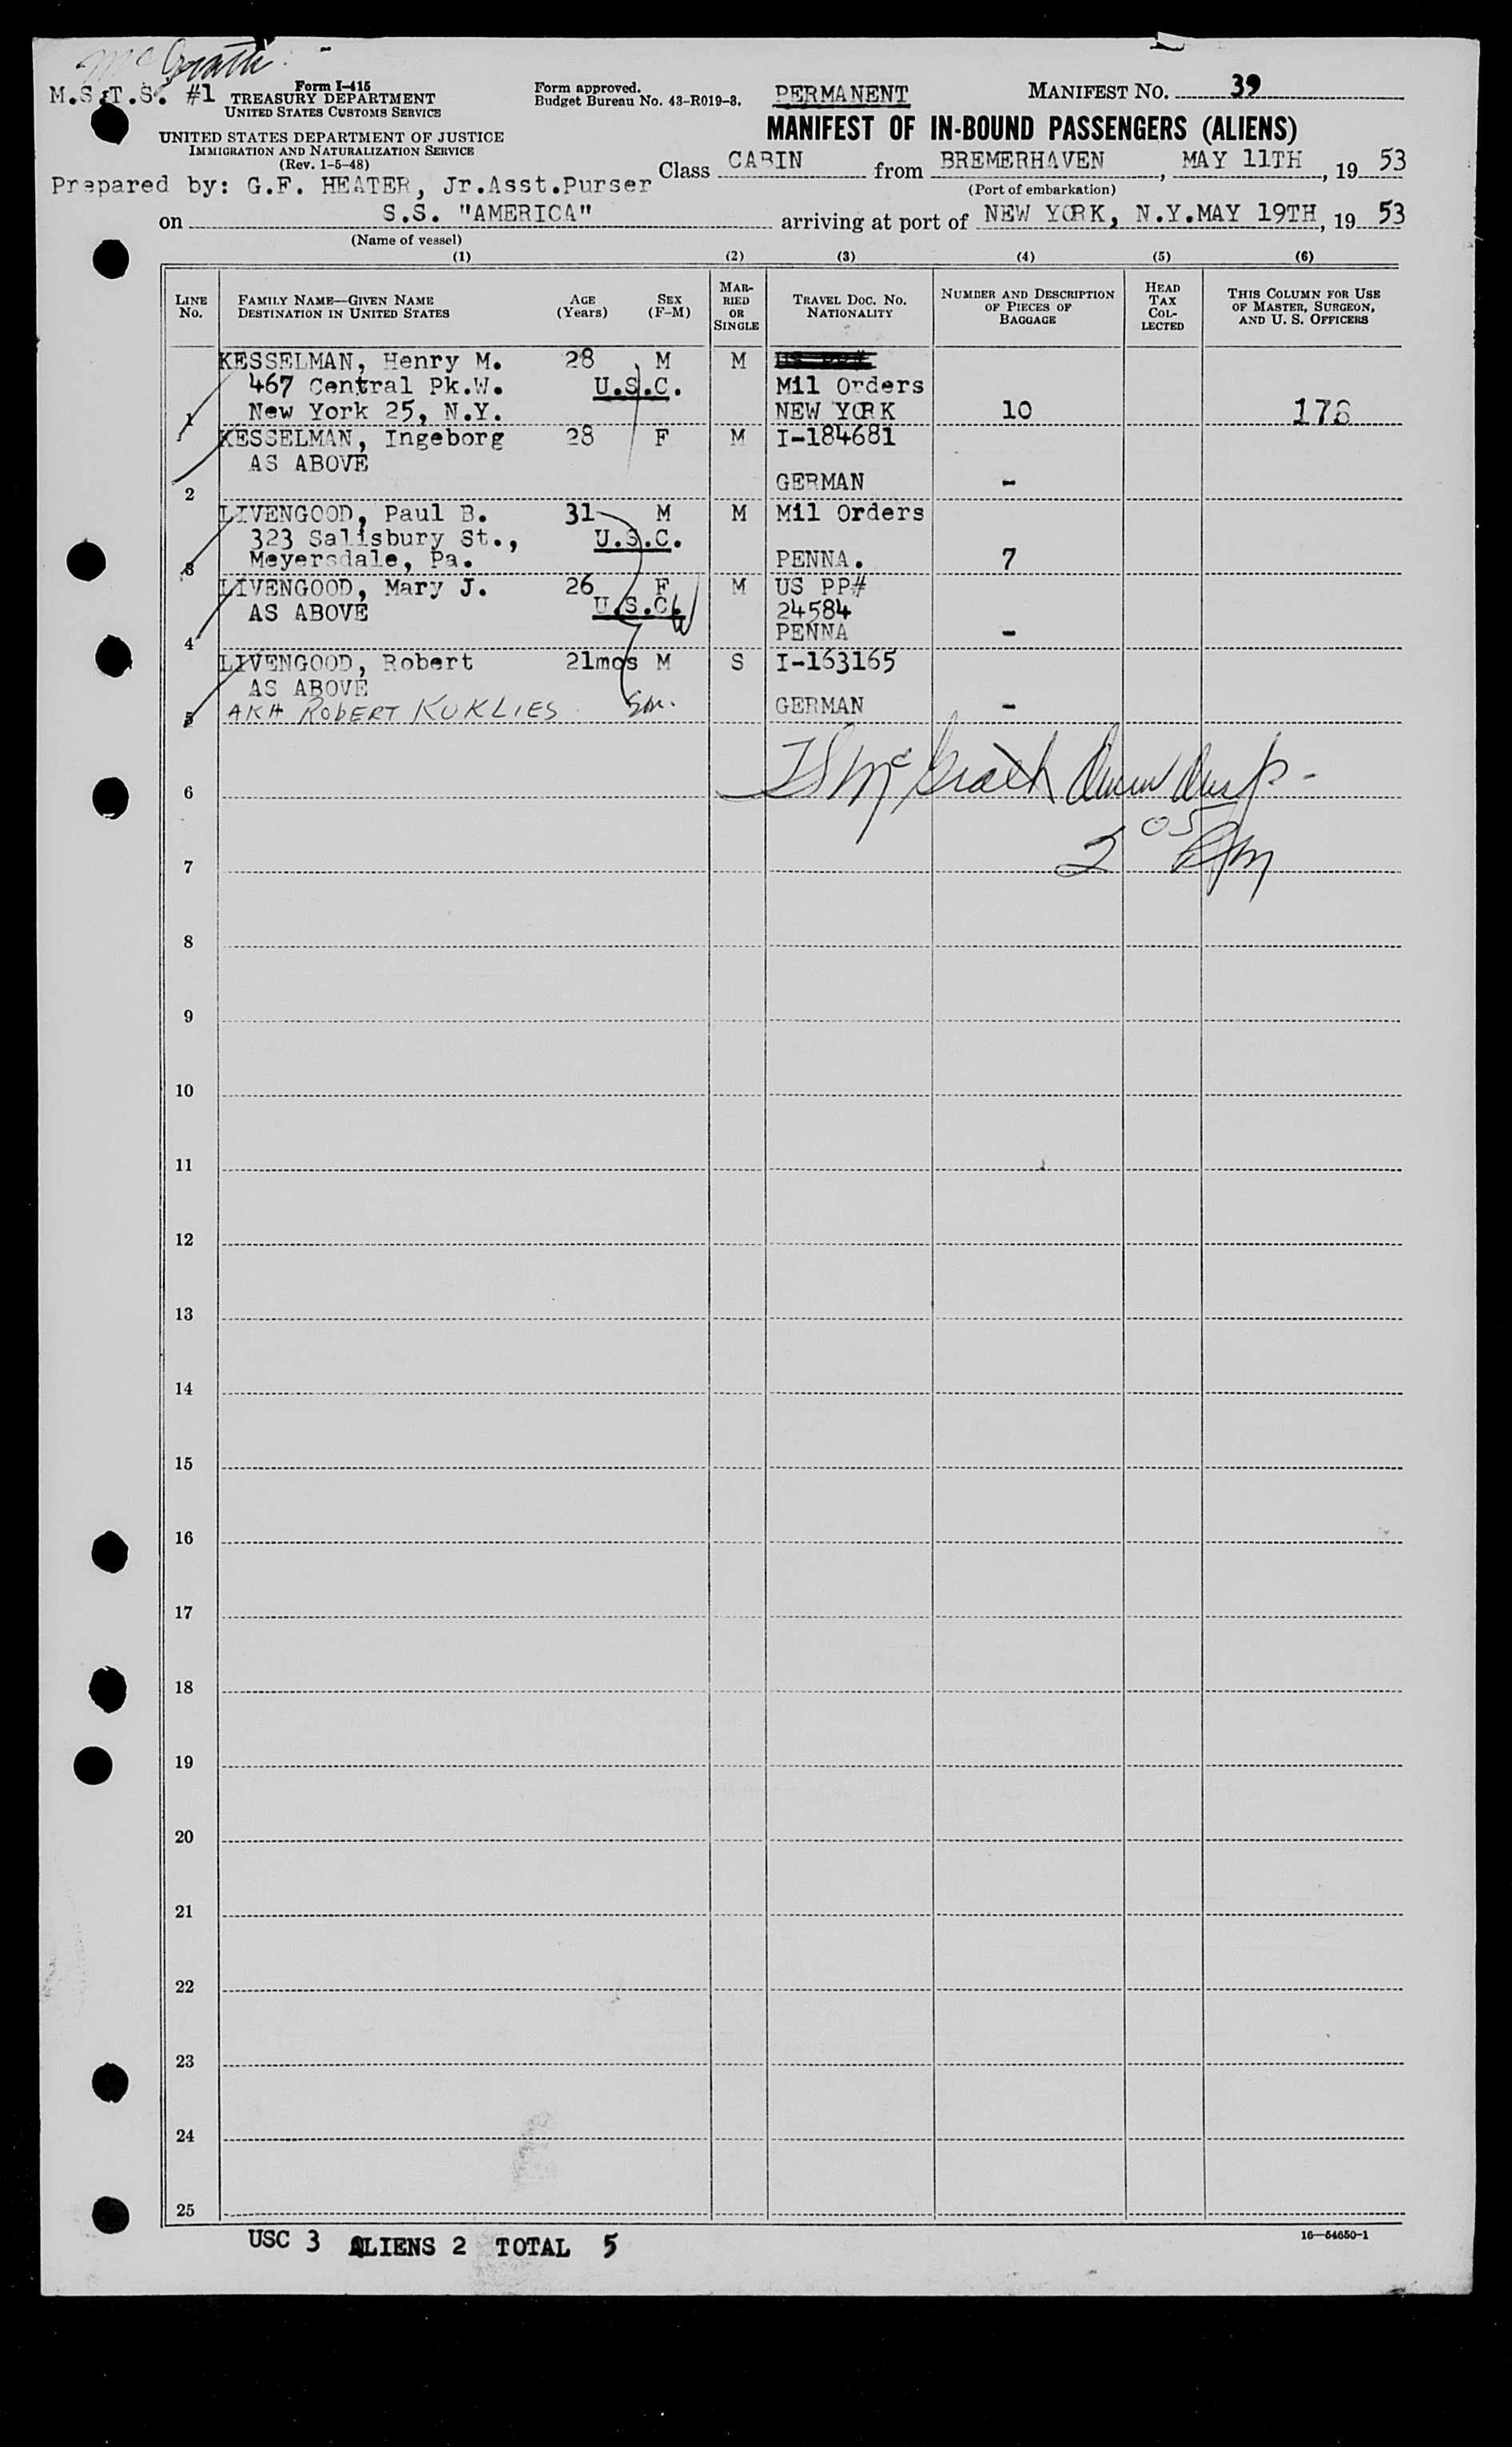 McGrath
M.S.T.S. #1
Form I-415
TREASURY DEPARTMENT
UNITED STATES CUSTOMS SERVICE
UNITED STATES DEPARTMENT OF JUSTICE
IMMIGRATION AND NATURALIZATION SERVICE
(Rev. 1-5-48)
Form approved.
Budget Bureau No. 43-R019-3.
PERMANENT
MANIFEST NO. 39
MANIFEST OF IN-BOUND PASSENGERS (ALIENS)
Class CABIN from BREMERHAVEN, MAY 11TH, 19 53
(Port of embarkation)
Prepared by: G.F. HEATER, Jr.Asst.Purser
on S.S. "AMERICA" arriving at port of NEW YORK, N.Y.MAY 19TH, 19 53
(Name of vessel)
(1) (2) (3) (4) (5) (6)
LINE NO.
FAMILY NAME—GIVEN NAME
DESTINATION IN UNITED STATES
AGE (Years)
SEX (F-M)
MARRIED OR SINGLE
TRAVEL DOC. NO.
NATIONALITY
NUMBER AND DESCRIPTION OF PIECES OF BAGGAGE
HEAD TAX COLLECTED
THIS COLUMN FOR USE OF MASTER, SURGEON, AND U. S. OFFICERS
KESSELMAN, Henry M. 28 M M
467 Central Pk.W. U.S.C. Mil Orders
1 New York 25, N.Y. NEW YORK 10 176
KESSELMAN, Ingeborg 28 F M I-184681
AS ABOVE
2 GERMAN -
LIVENGOOD, Paul B. 31 M M Mil Orders
323 Salisbury St., U.S.C.
3 Meyersdale, Pa. PENNA. 7
LIVENGOOD, Mary J. 26 F M US PP#
AS ABOVE U.S.C. 24584
4 PENNA -
LIVENGOOD, Robert 21mos M S I-163165
AS ABOVE
5 AKA ROBERT KUKLIES GERMAN -
6 McGrath
7 2 05 PM
8
9
10
11
12
13
14
15
16
17
18
19
20
21
22
23
24
25
USC 3 ALIENS 2 TOTAL 5
16—54650-1